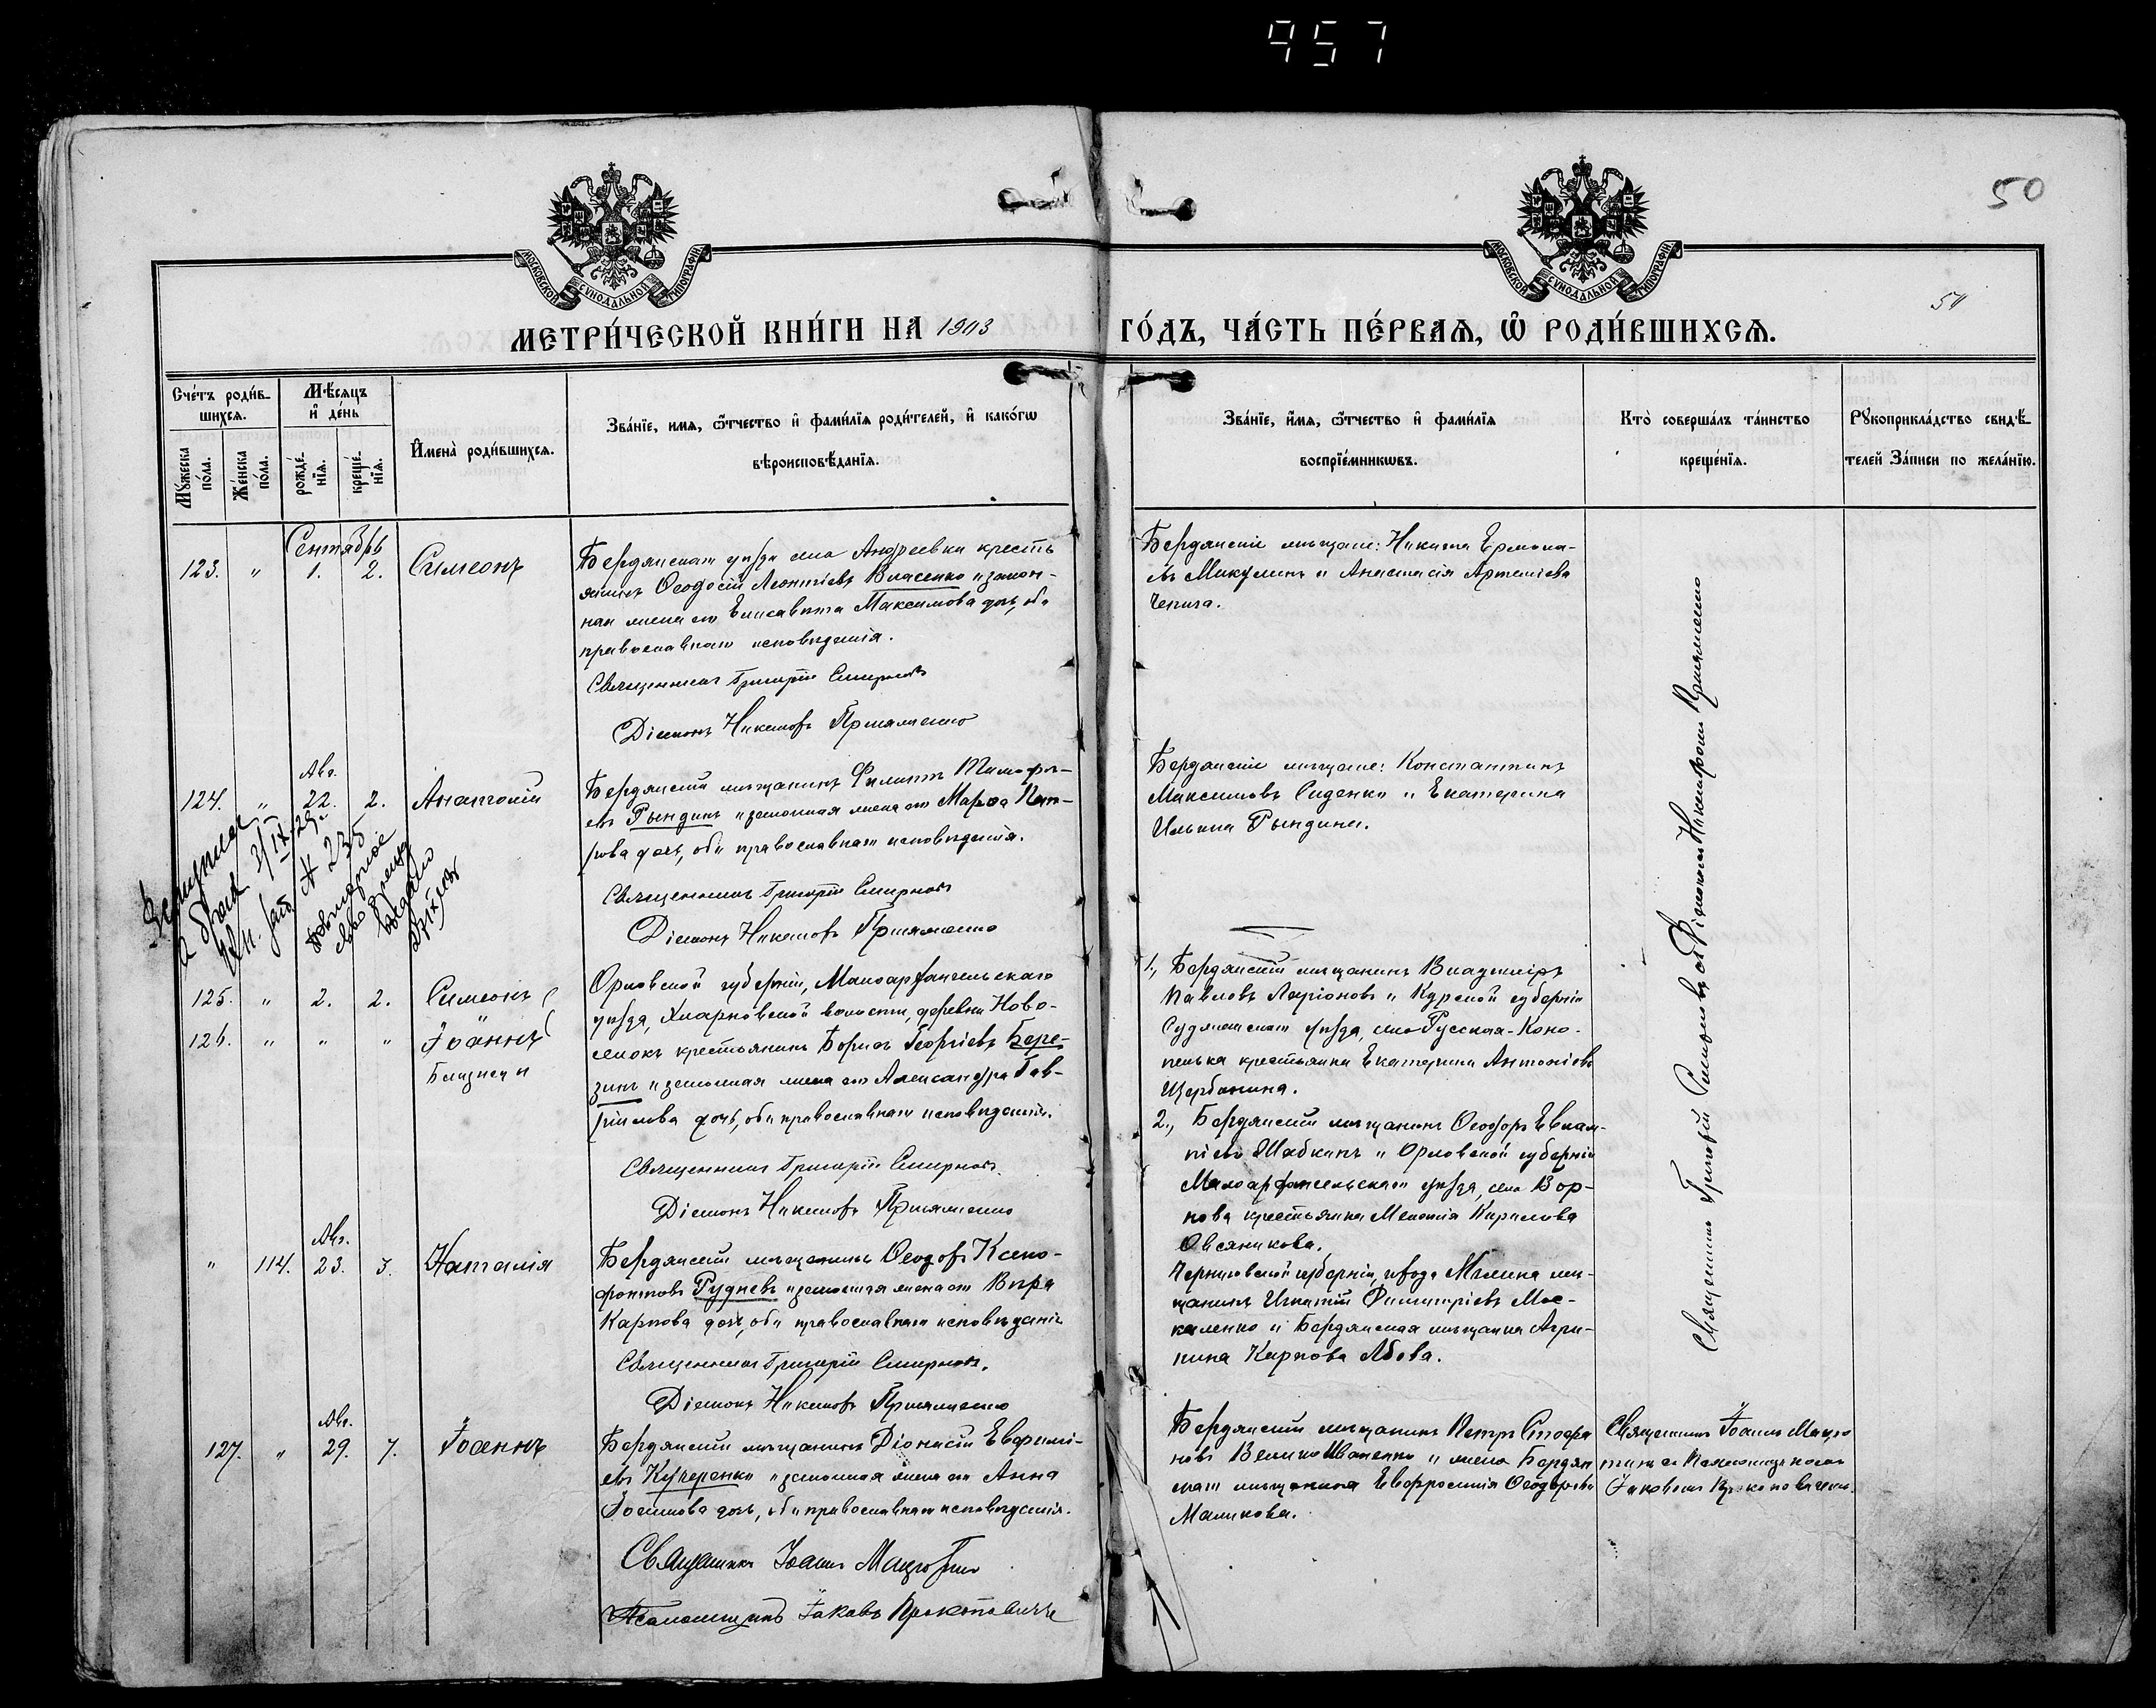 957
50
51
МОСКОВСКОЙ СУНОДАЛЬНОЙ ТИПОГРАФІИ
МОСКОВСКОЙ СУНОДАЛЬНОЙ ТИПОГРАФІИ
МЕТРИ́ЧЕСКОЙ КНИ́ГИ НА 1903
ГО́ДЪ, ЧА́СТЬ ПЕ́РВАѦ, Ѡ҆ РОДИ́ВШИХСѦ.
Сче́тъ роди́в-
шихсѧ.
Мꙋжеска по́ла.
Же́нска по́ла.
Мѣ́сѧцъ
и҆ де́нь
рожде́-
нїѧ.
креще́-
нїѧ.
И҆мена̀ роди́вшихсѧ.
Зва́нїе, имѧ, ѻ҆́тчество и҆ фами́лїѧ роди́телей, и҆ како́гѡ
вѣроисповѣ́данїѧ.
Зва́нїе, и҆́мѧ, ѻ҆́тчество и҆ фами́лїѧ
воспрїе́мникѡвъ.
Кто̀ соверша́лъ та́инство
креще́нїѧ.
Рꙋкоприкла́дство свидѣ́-
телей За́писи по жела́нїю.
Сентябрь
123. " 1. 2. Симеонъ
Бердянскаго уѣзда села Андреевки кресть
янинъ Ѳеодосій Леонтіевъ Власенко и закон-
ная жена его Елисавета Максимова дочь, оба
православнаго исповѣданія.
Священникъ Григорій Смирновъ
Діаконъ Никаноръ
Бердянскіе мѣщане: Никита Ермола-
евъ Микулинъ и Анастасія Артеміева
Авг.
124. " 22. 2. Анатолій
Бердянскій мѣщанинъ Филиппъ Тимофе-
евъ Рындинъ и законная жена его Марѳа Пет-
рова дочь, оба православнаго исповѣданія.
Священникъ Григорій Смирновъ
Діаконъ Никаноръ
Бердянскіе мѣщане: Константинъ
Максимовъ Сиденко и Екатерина
Ильина Рындина.
№ 235
125. " 2. 2. Симеонъ
126. " " " Іоаннъ
Близнецы
Орловской губерніи, Малоархангельскаго
уѣзда, волости, деревни Ново-
селокъ крестьянинъ Борисъ Георгіевъ Бере-
зинъ и законная жена его Александра Гав-
рилова дочь, оба православнаго исповѣданія.
Священникъ Григорій Смирновъ.
Діаконъ Никаноръ
1., Бердянскій мѣщанинъ Владиміръ
Павловъ Ларіоновъ и Курской губерніи
Суджанскаго уѣзда, села Русская-Коно-
пелька крестьянка Екатерина Антоніева
Щербинина.
2., Бердянскій мѣщанинъ Ѳеодоръ Евлам-
піевъ Шабкинъ и Орловской губерніи
Малоархангельскаго уѣзда, села
крестьянка Меланія Кирилова
Овсяникова.
Авг.
" 114. 23. 3. Наталія
Бердянскій мѣщанинъ Ѳеодоръ Ксено-
фонтовъ Рудневъ и законная жена его Вѣра
Карпова дочь, оба православнаго исповѣданія
Священникъ Григорій Смирновъ.
Діаконъ Никаноръ
Черниговской губерніи, города Мглина мѣ-
щанинъ Игнатій Димитріевъ Мос-
каленко и Бердянская мѣщанка Агри-
пина Карпова Абова.
Священникъ Григорій Смирновъ съ Діакономъ Никаноромъ
Авг.
127. " 29. 7. Іоаннъ
Бердянскій мѣщанинъ Діонисій Евфимі-
евъ Кучеренко и законная жена его Анна
Іоакимова дочь, оба православнаго исповѣданія.
Священникъ Іоаннъ
Псаломщикъ Іаковъ Прокоповичъ
Бердянскій мѣщанинъ Петръ Стефа
новъ Великоиваненко и жена Бердян
скаго мѣщанина Евфросинія Ѳеодорова
Маликова.
Священникъ Іоаннъ
съ Псаломщикомъ
Іаковомъ Прокоповичемъ.